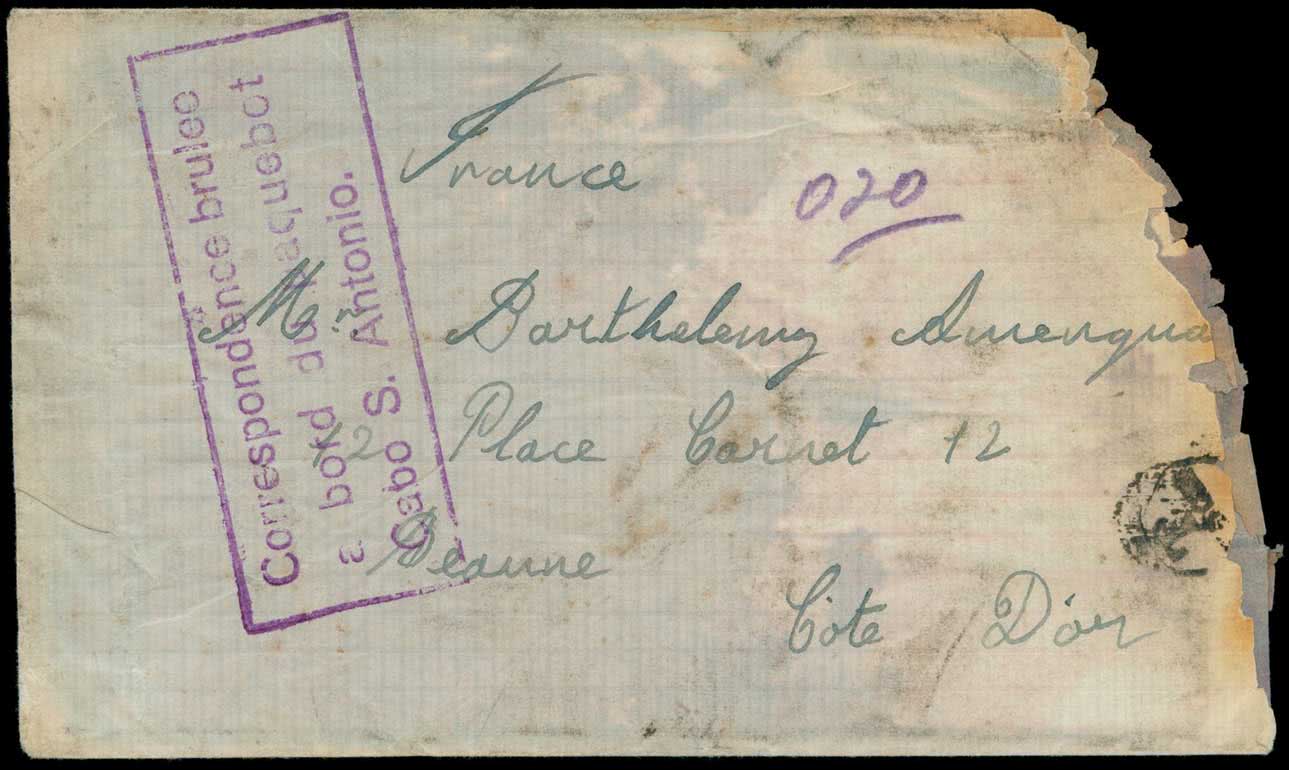 Correspondence brulee
a bord du Paquebot
Cabo S. Antonio.
France
020
Mr Barthelemy Amengua
12 Place Carnot 12
Beaune
Côte D'or